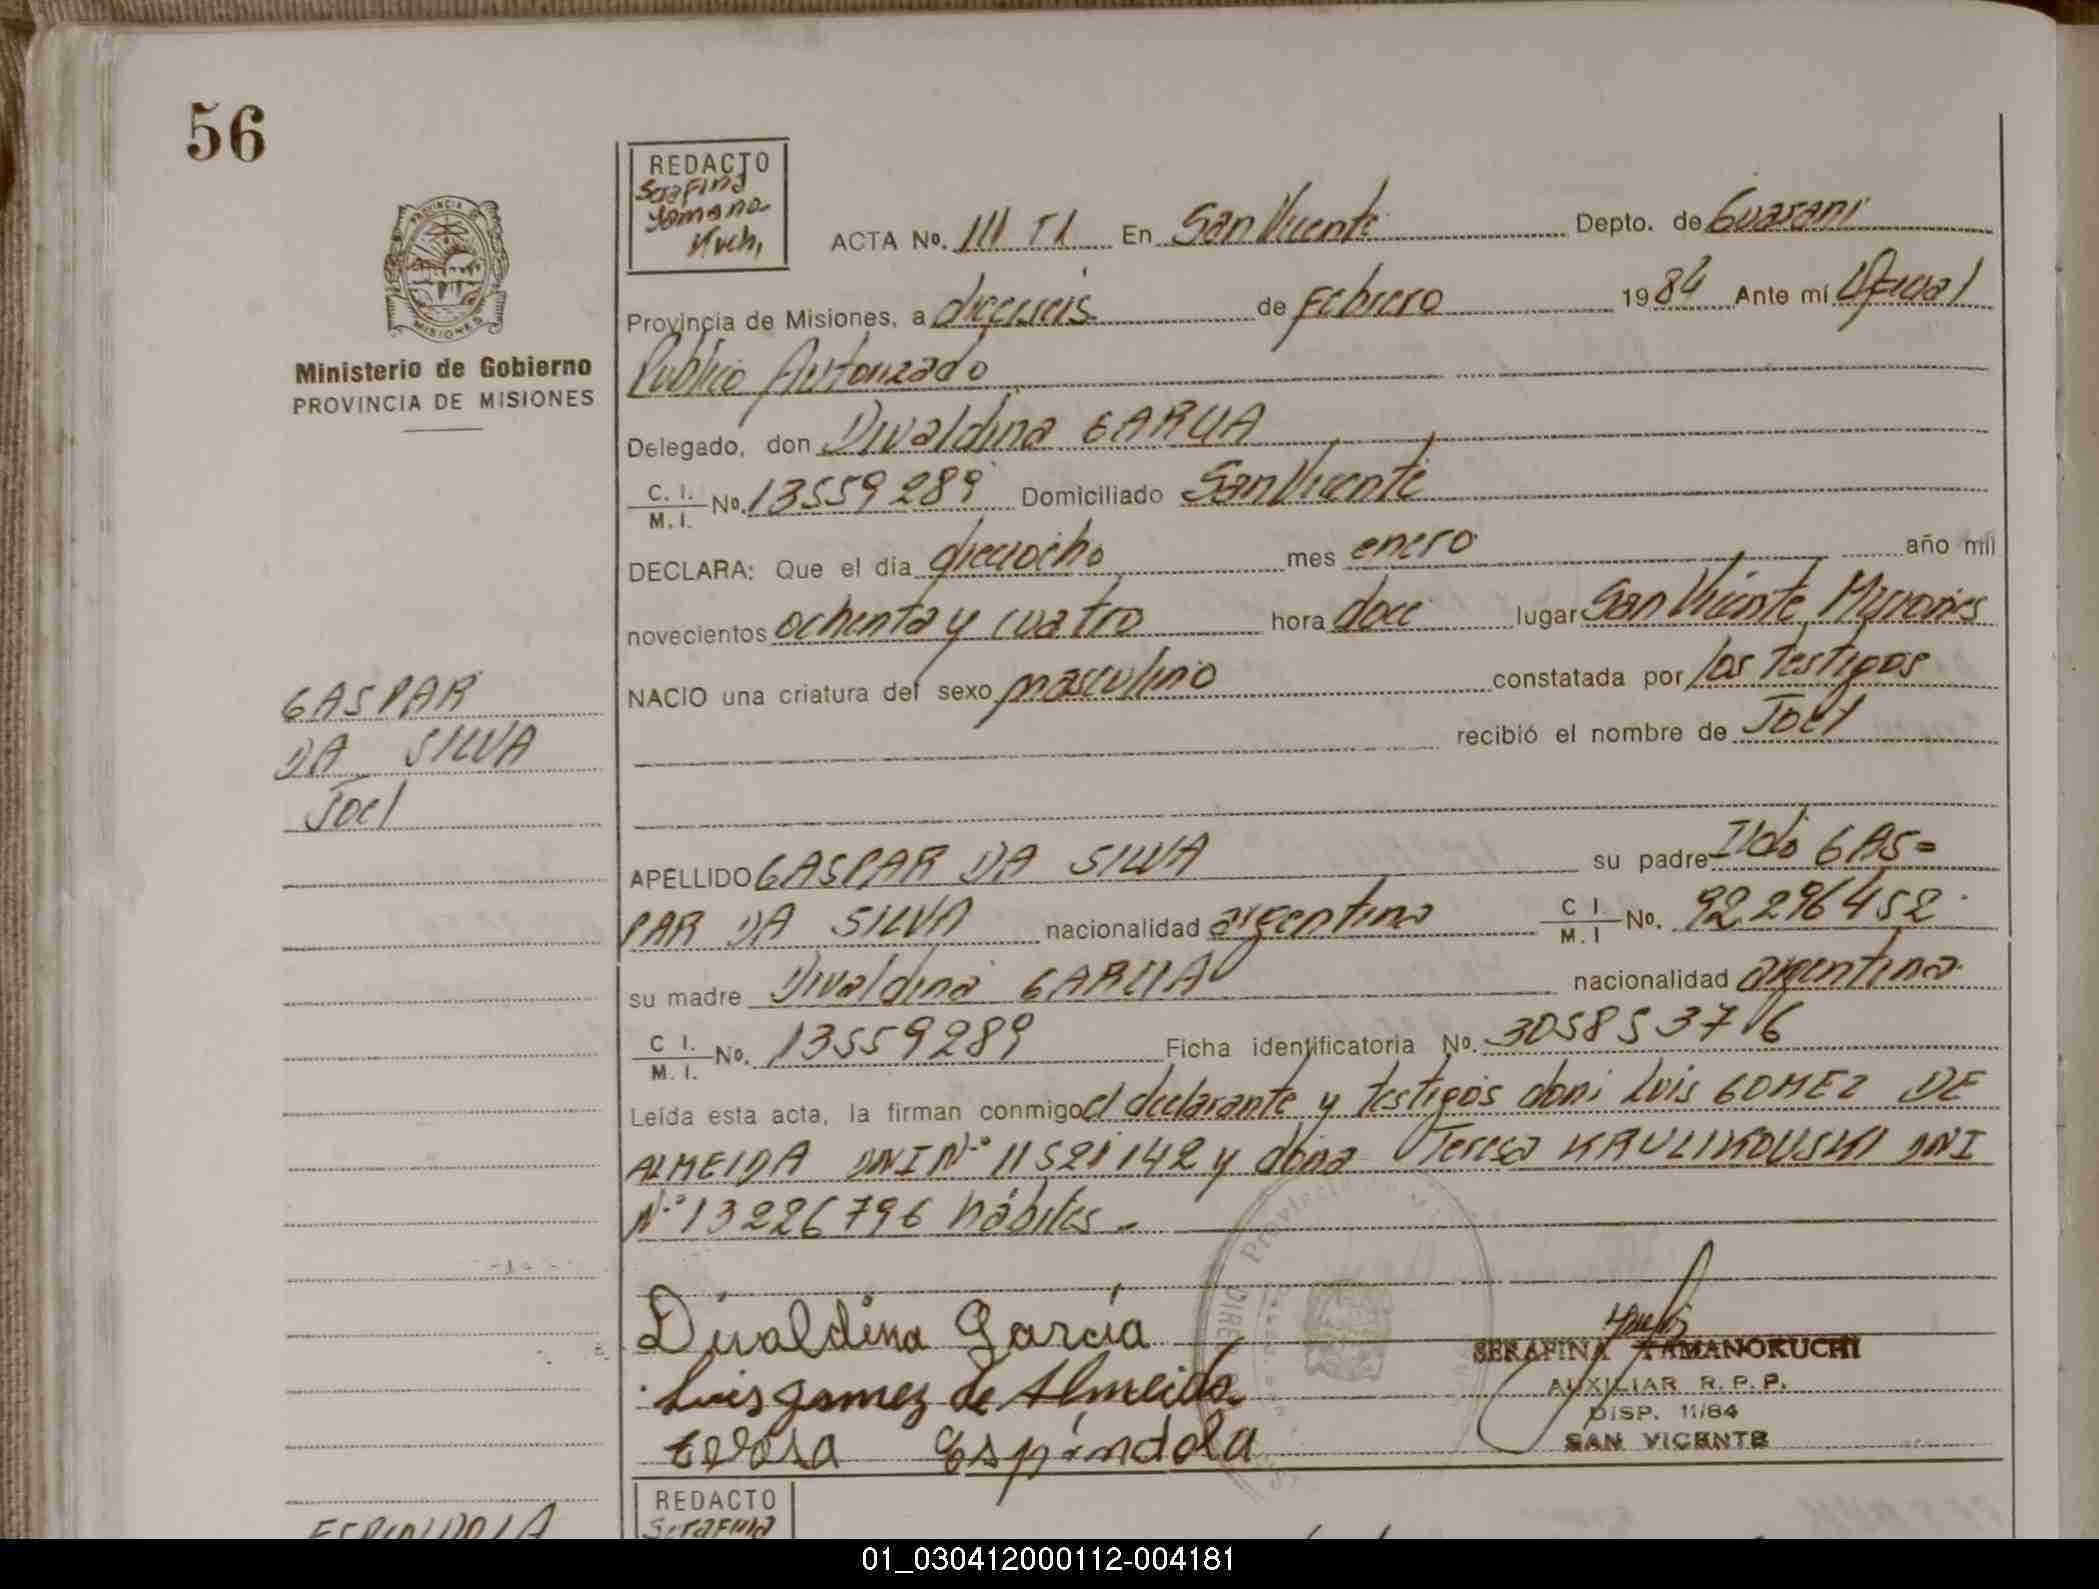 56
REDACTO
Serafina
Yamano-
Kuchi
PROVINCIA DE
MISIONES
Ministerio de Gobierno
PROVINCIA DE MISIONES
ACTA No. 111 T1 En San Vicente Depto. de Guarani
Provincia de Misiones, a dieciseis de Febrero 1984 Ante mí Oficial
Publico Autorizado
Delegado, don Divaldina GARCIA
C. I. / M. I. No. 13559289 Domiciliado San Vicente
DECLARA: Que el día dieciocho mes enero año mil
novecientos ochenta y cuatro hora doce lugar San Vicente Misiones
NACIO una criatura del sexo masculino constatada por los testigos
recibió el nombre de Joel
GASPAR
DA SILVA
Joel
APELLIDO GASPAR DA SILVA su padre Ildo GAS=
PAR DA SILVA nacionalidad argentina C I. / M. I No. 92296452
su madre Divaldina GARCIA nacionalidad argentina
C I. / M. I. No. 13559289 Ficha identificatoria No. 30585376
Leída esta acta, la firman conmigo el declarante y testigos don: Luis GOMEZ DE
ALMEIDA DNI Nº 11521142 y doña Teresa KRULIKOUSKI DNI
Nº 13226796 hábiles.-
Divaldina García
Luis gomez de Almeida
teresa Espíndola
SERAFINA YAMANOKUCHI
AUXILIAR R. P. P.
DISP. 11/84
SAN VICENTE
REDACTO
Serafina
ESPINDOLA
01_030412000112-004181